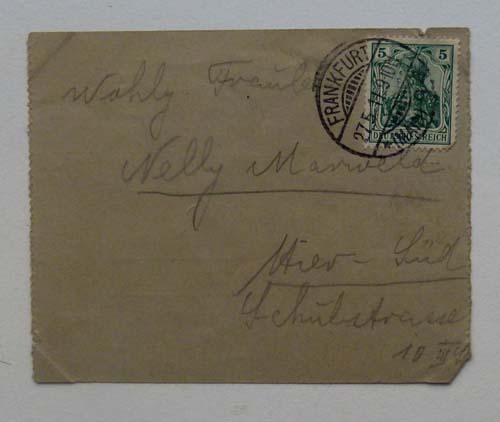 5 5
DEUTSCHES REICH
FRANKFURT
27.5.11.
Wohlg. Fräulein
Nelly
Hier - Süd
Schulstrasse
10 III